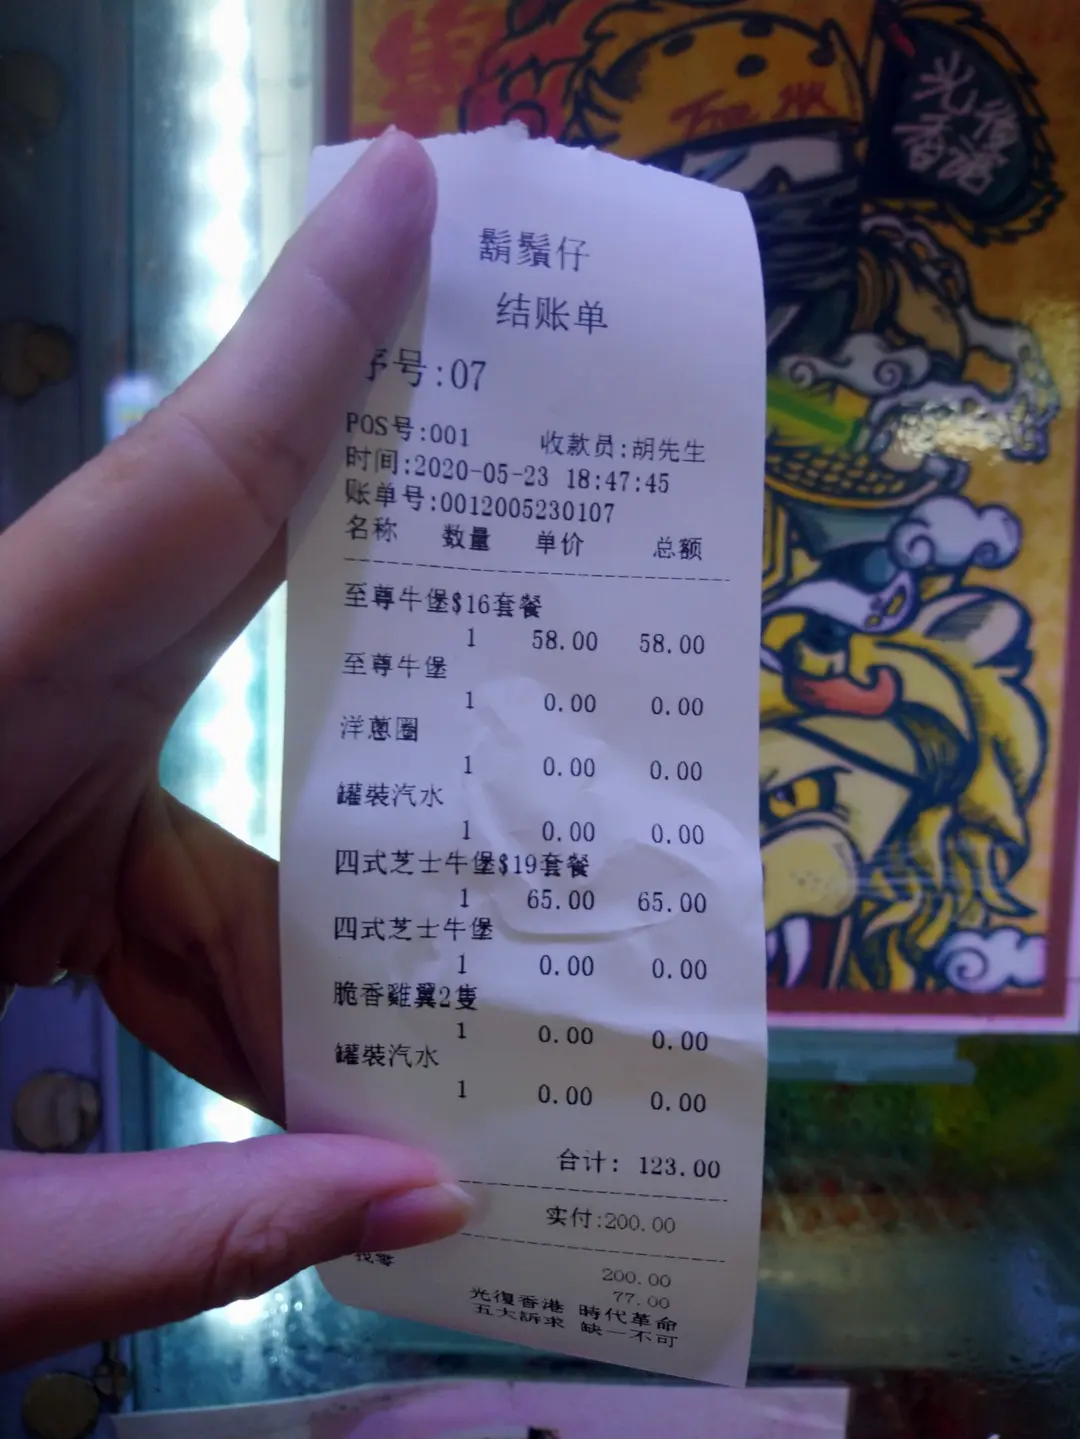 光復
香港
鬍鬚仔
结账单
序号:07
POS号:001 收款员:胡先生
时间:2020-05-23 18:47:45
账单号:0012005230107
名称 数量 单价 总额
至尊牛堡$16套餐
1 58.00 58.00
至尊牛堡
1 0.00 0.00
洋蔥圈
1 0.00 0.00
罐裝汽水
1 0.00 0.00
四式芝士牛堡$19套餐
1 65.00 65.00
四式芝士牛堡
1 0.00 0.00
脆香雞翼2隻
1 0.00 0.00
罐裝汽水
1 0.00 0.00
合计: 123.00
实付:200.00
200.00
找零 77.00
光復香港 時代革命
五大訴求 缺一不可